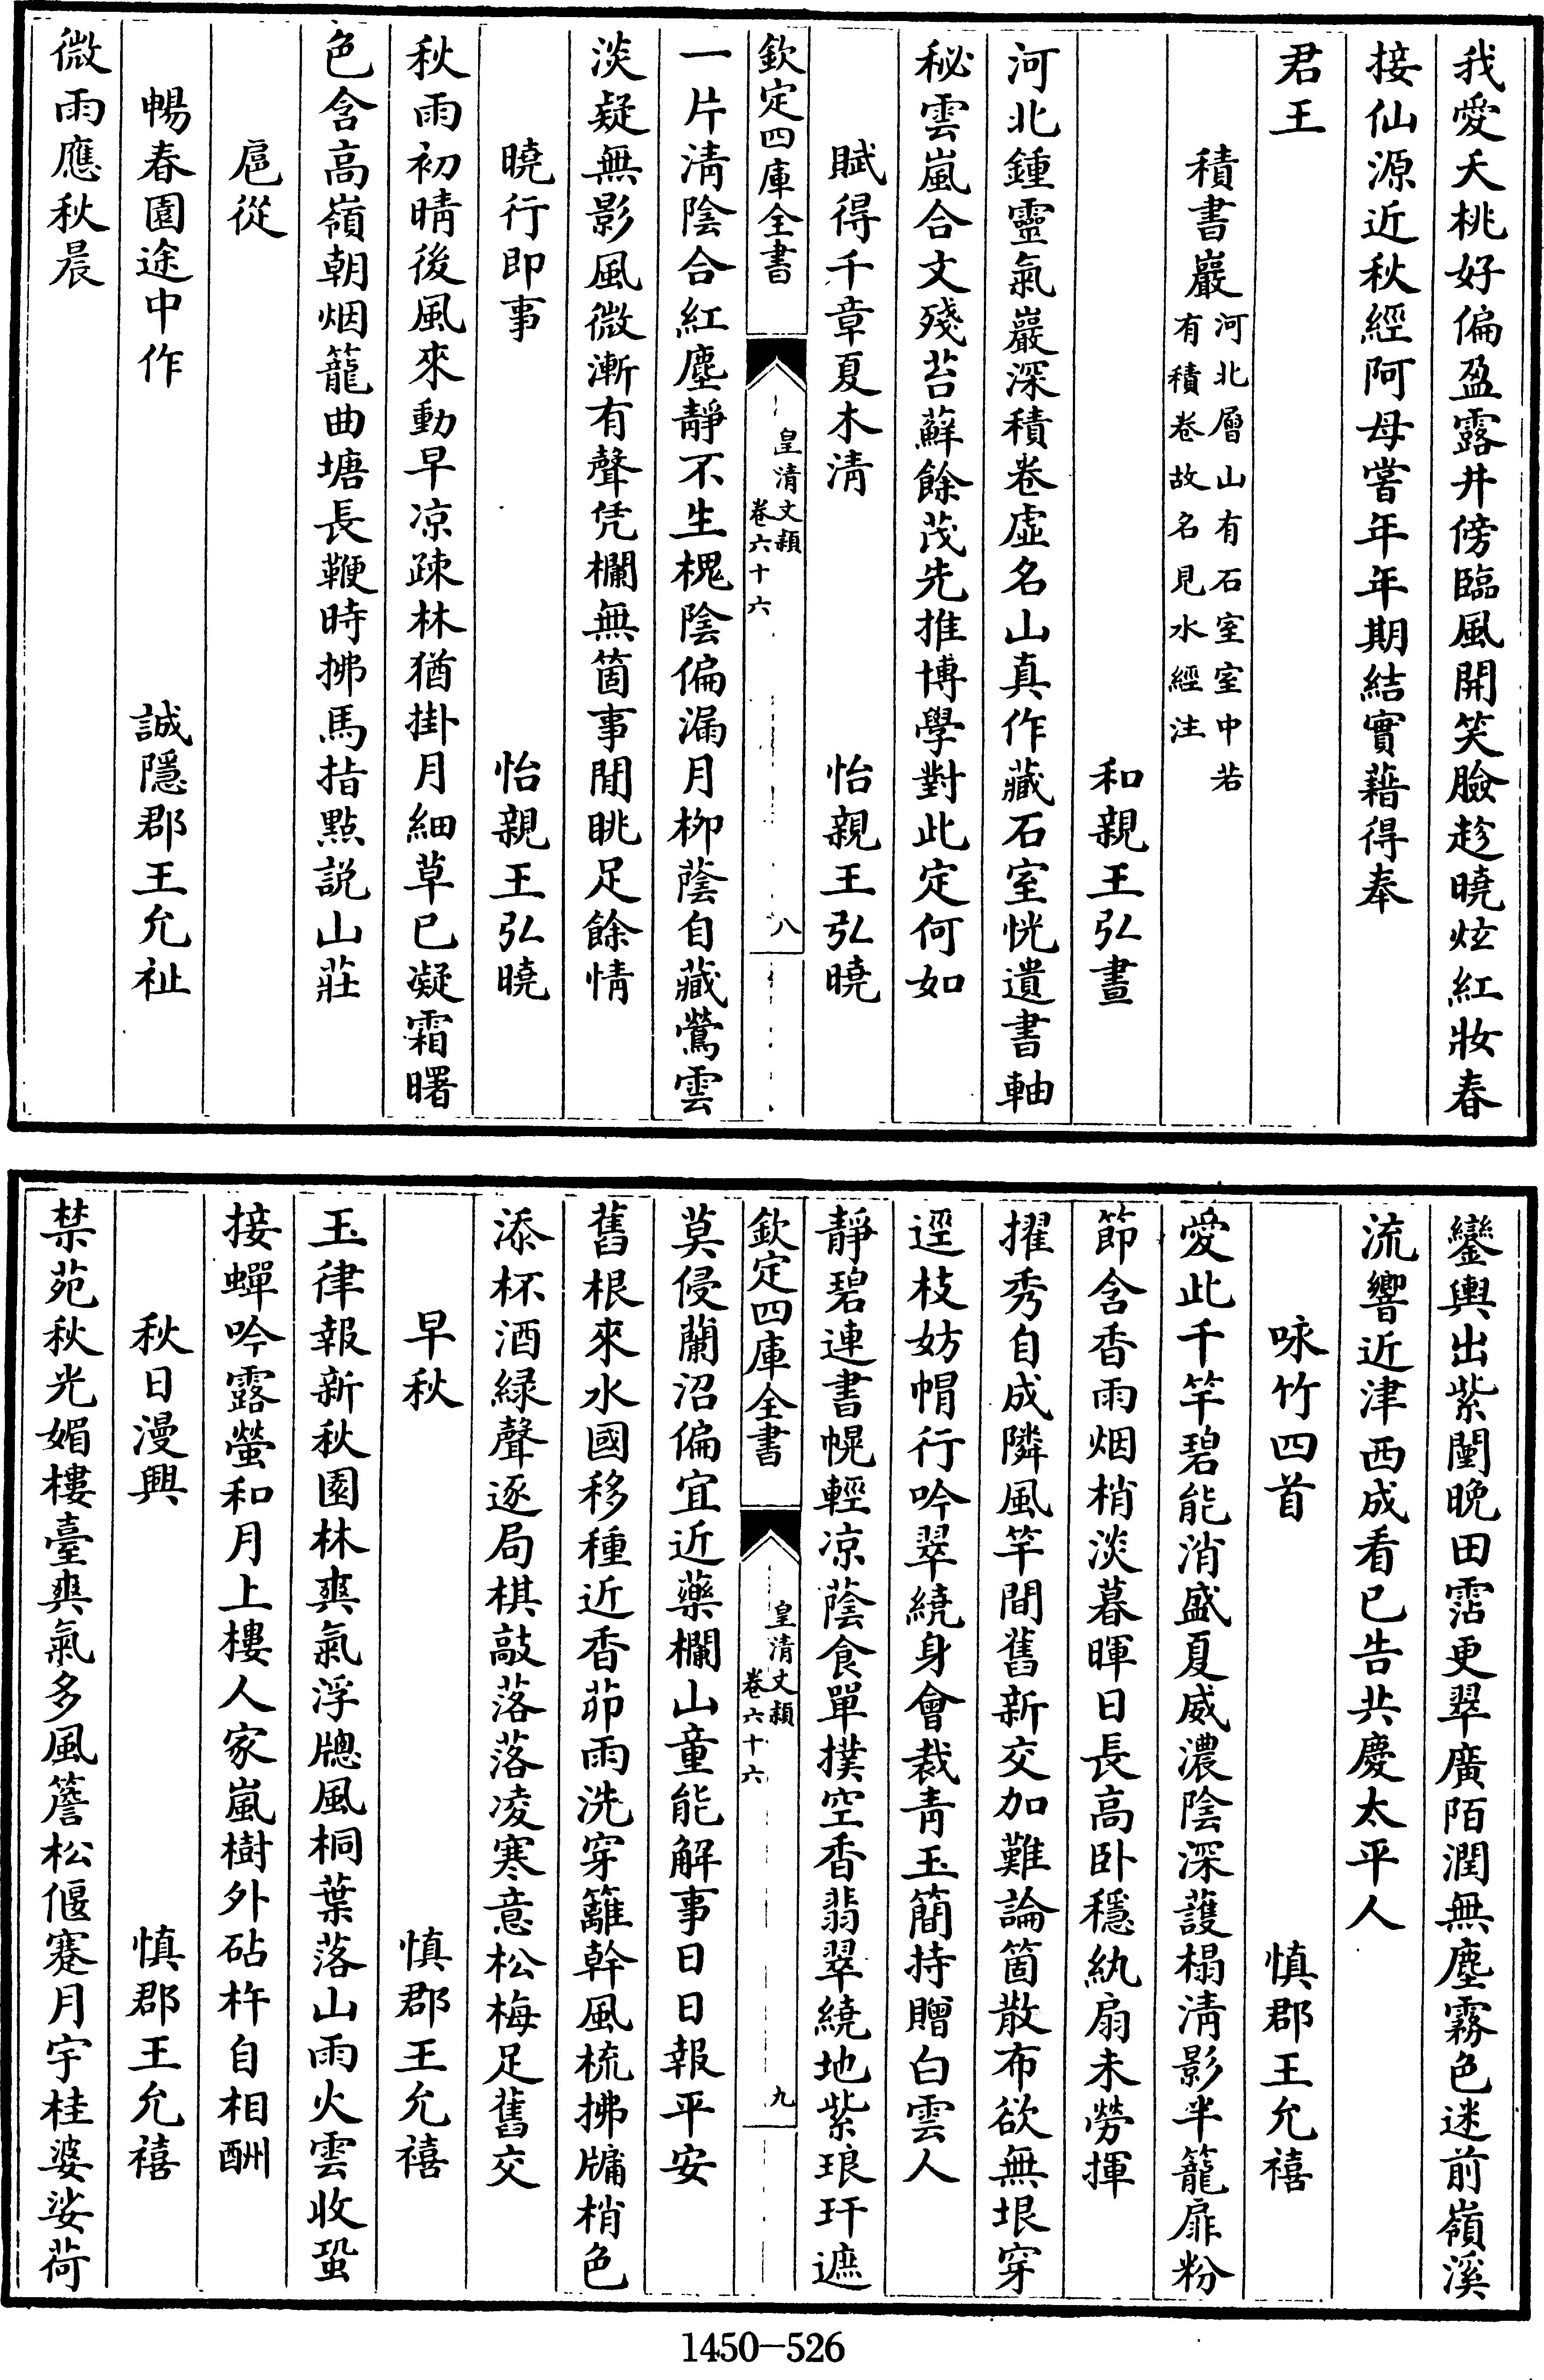 我愛夭桃好偏盈露井傍臨風開笑臉趁曉炫紅妝春
接仙源近秋經阿母嘗年年期結實藉得奉
君王
積書巖河北層山有石室室中若
有積卷故名見水經注
和親王弘晝
河北鍾靈氣巖深積卷虛名山真作藏石室恍遺書軸
秘雲嵐合文殘苔蘚餘茂先推博學對此定何如
賦得千章夏木清
怡親王弘曉
欽定四庫全書
皇清文穎
卷六十六
八
一片清陰合紅塵靜不生槐陰偏漏月柳蔭自藏鶯雲
淡疑無影風微漸有聲凭欄無箇事閒眺足餘情
曉行即事
怡親王弘曉
秋雨初晴後風來動早凉疎林猶掛月細草已凝霜曙
色含高嶺朝烟籠曲塘長鞭時拂馬指點説山莊
扈從
暢春園途中作
誠隱郡王允祉
微雨應秋晨
鑾輿出紫闉晚田霑更翠廣陌潤無塵霧色迷前嶺溪
流響近津西成看已告共慶太平人
咏竹四首
慎郡王允禧
愛此千竿碧能消盛夏威濃陰深護榻清影半籠扉粉
節含香雨烟梢淡暮暉日長高卧穩紈扇未勞揮
擢秀自成隣風竿間舊新交加難論箇散布欲無垠穿
逕枝妨帽行吟翠繞身會裁青玉簡持贈白雲人
靜碧連書幌輕凉蔭食單撲空香翡翠繞地紫琅玕遮
欽定四庫全書
皇清文穎
卷六十六
九
莫侵蘭沼偏宜近藥欄山童能解事日日報平安
舊根來水國移種近香茆雨洗穿籬幹風梳拂牗梢色
添杯酒緑聲逐局棋敲落落凌寒意松梅足舊交
早秋
慎郡王允禧
玉律報新秋園林爽氣浮牕風桐葉落山雨火雲收蛩
接蟬吟露螢和月上樓人家嵐樹外砧杵自相酬
秋日漫興
慎郡王允禧
禁苑秋光媚樓臺爽氣多風簷松偃蹇月宇桂婆娑荷
1450-526